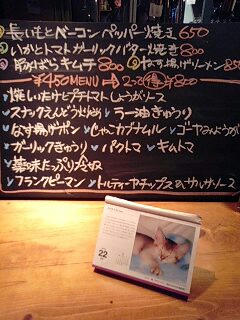 長いもとベーコンペッパー焼き 650
いかとトマトガーリックバター焼き 800
キムチ 800 なす揚げラーメン 850
¥450MENU → 2つで得¥800
焼しいたけとプチトマトしょうがソース
スナックえんどう ラー油きゅうり
なす揚げポン じゃこカブナムル ゴーヤみょうが
ガーリックきゅうり パクトマ キムトマ
薬味たっぷり冷奴
フランクピーマン トルティーヤチップスwサルサソース
22